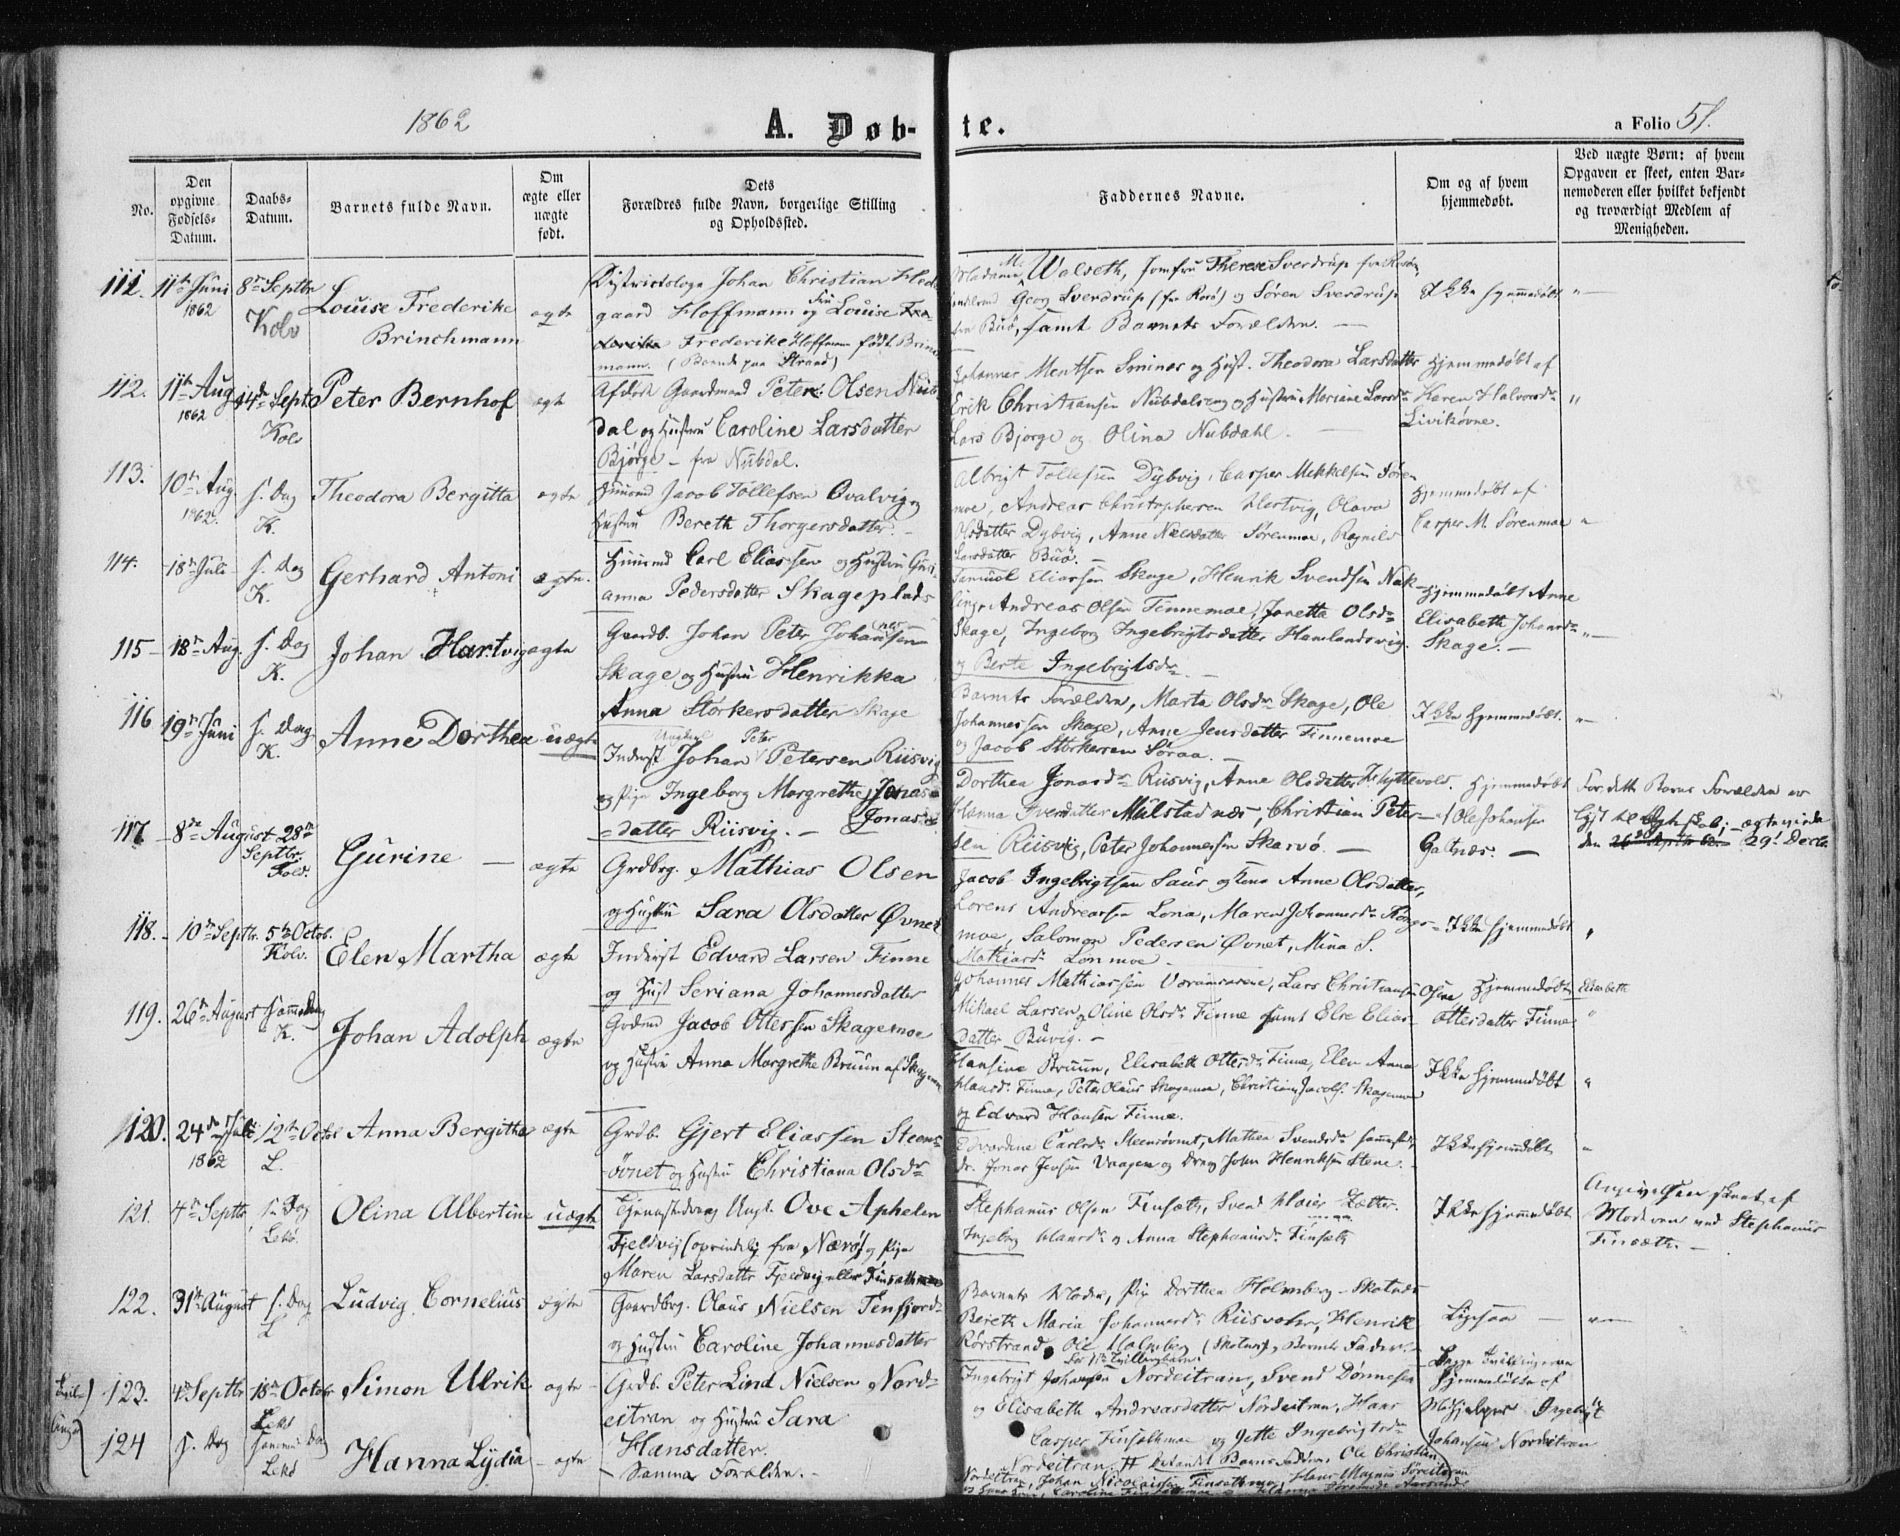 1862
A. Døb-
te.
a Folio 51.
No.
Den
opgivne
Fødsels-
Datum.
Daabs-
Datum.
Barnets fulde Navn.
Om
ægte eller
uægte
født.
Dets
Forældres fulde Navn, borgerlige Stilling
og Opholdssted.
Faddernes Navne.
Om og af hvem
hjemmedøbt.
Ved uægte Børn: af hvem
Opgaven er skeet, enten Bar-
nemoderen eller hvilket bekjendt
og troværdigt Medlem af
Menigheden.
111. 11te Juni 8de Septbr
1862 Kolv
Louise Frederike
Brinchmann
ægte
Districtslæge Johan Christian Hede
gaard Hoffmann og Fru Louise
Frederike Hoffmann født Brinch
mann. (Boende paa Strand)
Madame Walseth, Jomfru Therese Sverdrup fra
Georg Sverdrup (fra Rorø) og Søren Sverdrup
fra Buø, samt Barnets Forældre. —
Ikke hjemmedøbt
112. 11te Aug 14de Sept.
1862 Kolv
Peter Bernhof
ægte
Afdøde Gaardmand Peter Olsen Nub
dal og Hustru Caroline Larsdatter
Bjørge - fra Nubdal.
Johannes Mentsen Smines og Hust. Theodora Larsdatter
Erik Christiansen Nubdalseng og Hustru Mariane Larsdr
Lars Bjørge og Olina Nubdahl. —
Hjemmedøbt af
Karen Halvorsdr
Livikøvne.
113. 10de Aug. s. Dag
1862. K.
Theodora Bergitta
ægte
Huusmd Jacob Tollefsen Qvalvig og
Hustru Bereth Thorgersdatter. —
Albrigt Tollefsen Dybvig, Casper Mekkelsen Søren
moe, Andreas Christophersen Hertvig, Olava
Olsdatter Dybvig, Anne Nielsdatter Sørenmoe, Ragnild
Larsdatter Buø. —
Hjemmedøbt af
Casper M. Sørenmoe
114. 18de Juli s. Dag
K.
Gerhard Antoni
ægte.
Huusmd Carl Eliassen og Hustru Guri-
anna Pedersdatter Skageplads
Samuel Eliassen Skage, Henrik Svendsen Nak
ling, Andreas Olsen Finnemoe, Janetta Olsdr
Skage, Ingeborg Ingebrigtsdatter Hamlandsvig.
og Berte Ingebrigtsdr.
Hjemmedøbt Anne
Elisabeth Johansdr
Skage. —
115 - 18de Aug. s. Dag
K.
Johan Hartvig
ægte
Gaardb. Johan Peter Johannessen
Skage og Hustru Henrikka
Anna Storkersdatter Skage
Barnets Forældre, Marta Olsdr Skage, Ole
Johannessen Skage, Anne Jensdatter Finnemoe
og Jacob Storkersen Søraa. —
Ikke hjemmedøbt.
116 19de Juni s. Dag
K.
Anne Dorthea
uægte
Ungkarl Peter
Inderst Johan Petersen Riisvig
og Pige Ingeborg Margrethe Jonas-
datter Riisvig. — Jonasdr.
Dorthea Jonasdr Riisvig, Anne Olsdatter Hyttevold.
Hanna Iversdatter Mulstadnæs, Christian Peter-
sen Riisvig, Peter Johannessen Skarvø. —
Hjemmedøbt
af Ole Johansen
Galtnæs. —
For dette Barns Forældre er
lyst til Ægteskab; - ægteviede
den 29d Decbr.
117 - 8de August 28de
Septbr.
Kolv.
Gurine —
ægte
Grdbrg. Mathias Olsen
og Hustru Sara Olsdatter Øvnet
Jacob Ingebrigtsen Saur og Kone Anne Olsdatter,
Lorens Andreassen Lona, Maren Johannesdr Kongs-
moe, Salomon Pedersen Øvnet, Mina S.
Mathiasdr Lonmoe
Ikke hjemmedøbt
118. - 10de Septbr. 5te Octob.
Kolv.
Elen Martha
ægte
Inderst Edvard Larsen Finne
og Hust Seriana Johannesdatter
Johannes Mathiassen Lars Christiansen Osen
Mikael Larsen og Oline Olsdr Finne samt Else Elias-
datter Buvig. —
Hjemmedøbt Elisabeth
Ottersdatter Finne
119. 26de August samme Dag
K.
Johan Adolph
ægte
Grdmd Jacob Ottersen Skagemoe
og Hustru Anna Margrethe Bruun af Skagemoe
Hansine Bruun, Elisabeth Ottersdr Finne, Elen Anna
Hansdr Finne, Peter Olaus Skagemoe, Christian Jacobs. Skagemoe
og Edvard Hansen Finne.
Ikke hjemmedøbt
120. 24de Juli 12te Octbr
1862 L.
Anna Bergitha
ægte
Grdb. Gjert Eliassen Steens-
øvnet og Hustru Christiana Olsdr
Edvardine Carlsdr Steensøvnet, Mathea Svendsdr sammesteds,
dr. Jonas Jensen Vaagen og Dreng John Henriksen Stene.
Ikke hjemmedøbt
121. 4de Septbr s. Dag
Lekø.
Olina Albertine
uægte
Tjenestedreng Ungk. Ove Aphelen
Fjeldvig (oprindelig fra Nærø) og Pige
Maren Larsdatter Fjeldvig eller Finsæthmoe
Stephanus Olsen Finsæth, Svend Hans
Ingeborg Hansdr og Anna Stephanusdr Finsæth
Ikke hjemmedøbt
Angivelsen skeet af
Moderen ved Stephanus
Finsæth. —
122. 31te August s. Dag
L
Ludvig Cornelius
ægte
Gaardbrg. Olaus Nielsen Tenfjord
og Hustru Caroline Johannesdatter
Barnets Moder, Pige Dorthea Holmberg - Skotnes
Bereth Maria Johannesdr Riisvær, Henrik
Rørstrand, Ole Holmberg (Skotnes) og Barnets Fader.
Ligesaa —
Tvil-
linger
123. 4de Septbr 18de Octobr
Lekø
Simon Ulrik
ægte
Grdb. Peter Lind Nielsen Nord-
eitran og Hustru Sara
Hansdatter.
For 1ste Tvillingbarn:
Ingebrigt Johansen Nordeitran, Svend Dønnesen
og Elisabeth Andreasdatter Nordeitran, Hans
Casper Finsæthmoe og Jette Ingebrigtsdr
Nordeitran. For det andet Barns Faddere, Ole Christian
Nordeitran, Johan Nicolaisen Finsæthmoe, Hans Magnus Søreitran
Begge Tvillingerne
hjemmedøbte af
Medhjelper Ingebrigt
Johansen Nordeitran
124 s. Dag samme Dag
Lekø
Hanna Lydia
- ægte
Samme Forældre. —